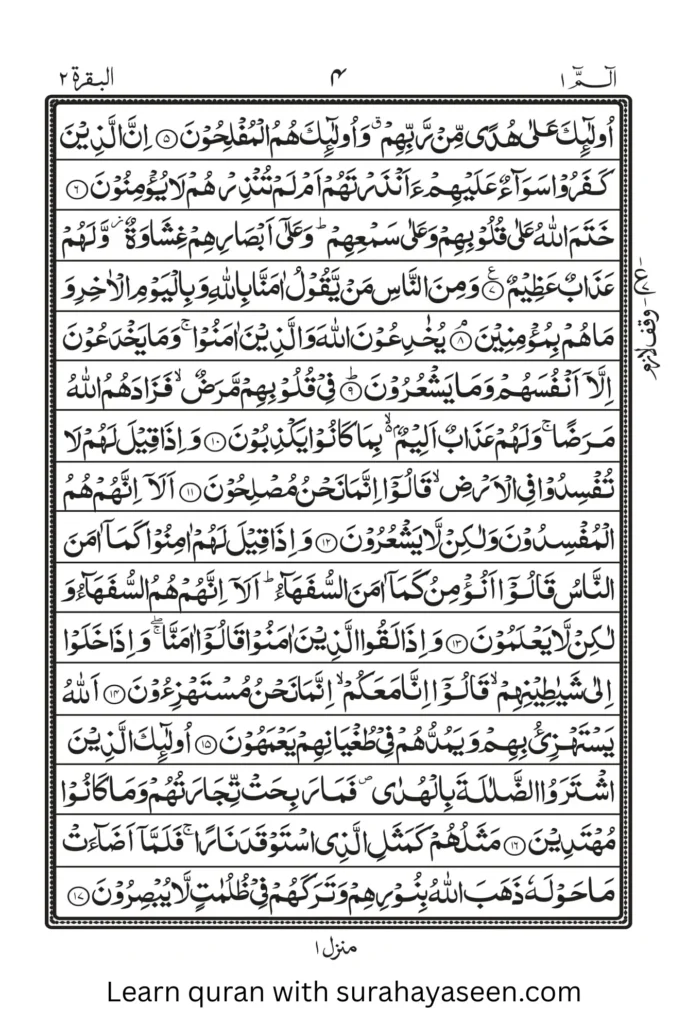 الٓـمّٓ ١ ٤ البقرة ٢
اُولٰٓئِكَ عَلٰى هُدًى مِّنْ رَّبِّهِمْ ۗ وَاُولٰٓئِكَ هُمُ الْمُفْلِحُوْنَ ﴿٥﴾ اِنَّ الَّذِيْنَ
كَفَرُوْا سَوَآءٌ عَلَيْهِمْ ءَاَنْذَرْتَهُمْ اَمْ لَمْ تُنْذِرْهُمْ لَا يُؤْمِنُوْنَ ﴿٦﴾
خَتَمَ اللّٰهُ عَلٰى قُلُوْبِهِمْ وَعَلٰى سَمْعِهِمْ ؕ وَعَلٰٓى اَبْصَارِهِمْ غِشَاوَةٌ ؗ وَّلَهُمْ
عَذَابٌ عَظِيْمٌ ﴿٧﴾ۧ وَمِنَ النَّاسِ مَنْ يَّقُوْلُ اٰمَنَّا بِاللّٰهِ وَبِالْيَوْمِ الْاٰخِرِ وَ
مَا هُمْ بِمُؤْمِنِيْنَ ﴿٨﴾ۘ يُخٰدِعُوْنَ اللّٰهَ وَالَّذِيْنَ اٰمَنُوْا ۚ وَمَا يَخْدَعُوْنَ
اِلَّآ اَنْفُسَهُمْ وَمَا يَشْعُرُوْنَ ﴿٩﴾ؕ فِيْ قُلُوْبِهِمْ مَّرَضٌ ۙ فَزَادَهُمُ اللّٰهُ
مَرَضًا ۚ وَلَهُمْ عَذَابٌ اَلِيْمٌ ۢ ۙ بِمَا كَانُوْا يَكْذِبُوْنَ ﴿١٠﴾ وَاِذَا قِيْلَ لَهُمْ لَا
تُفْسِدُوْا فِى الْاَرْضِ ۙ قَالُوْٓا اِنَّمَا نَحْنُ مُصْلِحُوْنَ ﴿١١﴾ اَلَآ اِنَّهُمْ هُمُ
الْمُفْسِدُوْنَ وَلٰكِنْ لَّا يَشْعُرُوْنَ ﴿١٢﴾ وَاِذَا قِيْلَ لَهُمْ اٰمِنُوْا كَمَآ اٰمَنَ
النَّاسُ قَالُوْٓا اَنُؤْمِنُ كَمَآ اٰمَنَ السُّفَهَآءُ ؕ اَلَآ اِنَّهُمْ هُمُ السُّفَهَآءُ وَ
لٰكِنْ لَّا يَعْلَمُوْنَ ﴿١٣﴾ وَاِذَا لَقُوا الَّذِيْنَ اٰمَنُوْا قَالُوْٓا اٰمَنَّا ۖۚ وَاِذَا خَلَوْا
اِلٰى شَيٰطِيْنِهِمْ ۙ قَالُوْٓا اِنَّا مَعَكُمْ ۙ اِنَّمَا نَحْنُ مُسْتَهْزِءُوْنَ ﴿١٤﴾ اَللّٰهُ
يَسْتَهْزِئُ بِهِمْ وَيَمُدُّهُمْ فِيْ طُغْيَانِهِمْ يَعْمَهُوْنَ ﴿١٥﴾ اُولٰٓئِكَ الَّذِيْنَ
اشْتَرَوُا الضَّلٰلَةَ بِالْهُدٰى ۪ فَمَا رَبِحَتْ تِّجَارَتُهُمْ وَمَا كَانُوْا
مُهْتَدِيْنَ ﴿١٦﴾ مَثَلُهُمْ كَمَثَلِ الَّذِى اسْتَوْقَدَ نَارًا ۚ فَلَمَّآ اَضَآءَتْ
مَا حَوْلَهٗ ذَهَبَ اللّٰهُ بِنُوْرِهِمْ وَتَرَكَهُمْ فِيْ ظُلُمٰتٍ لَّا يُبْصِرُوْنَ ﴿١٧﴾
وقف لازم
منزل ١
Learn quran with surahayaseen.com